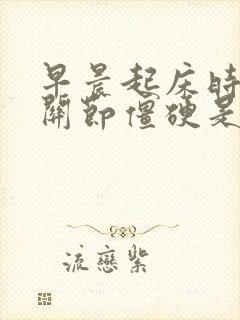 早晨起床时
關節僵硬是
流戀紫